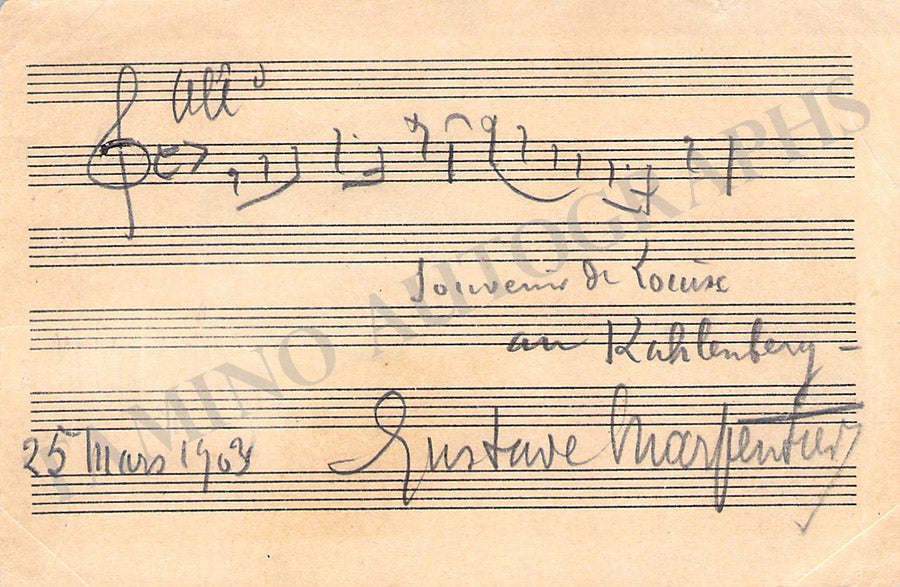 All°
Souvenir de Louise
au Kahlenberg –
25 Mars 1903
Gustave Charpentier
TAMINO AUTOGRAPHS